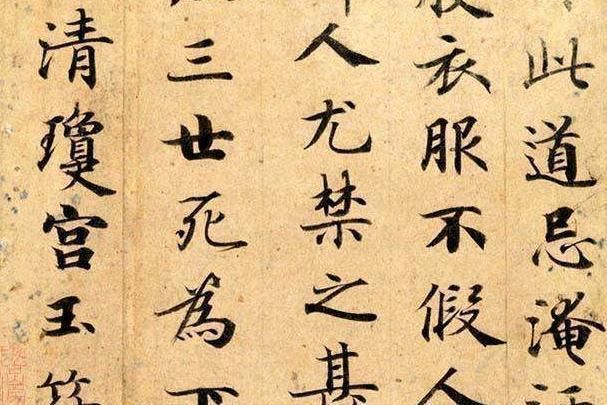 此道忌淹
衣服不假人
人尤禁之甚
三世死為下
清瓊宮玉